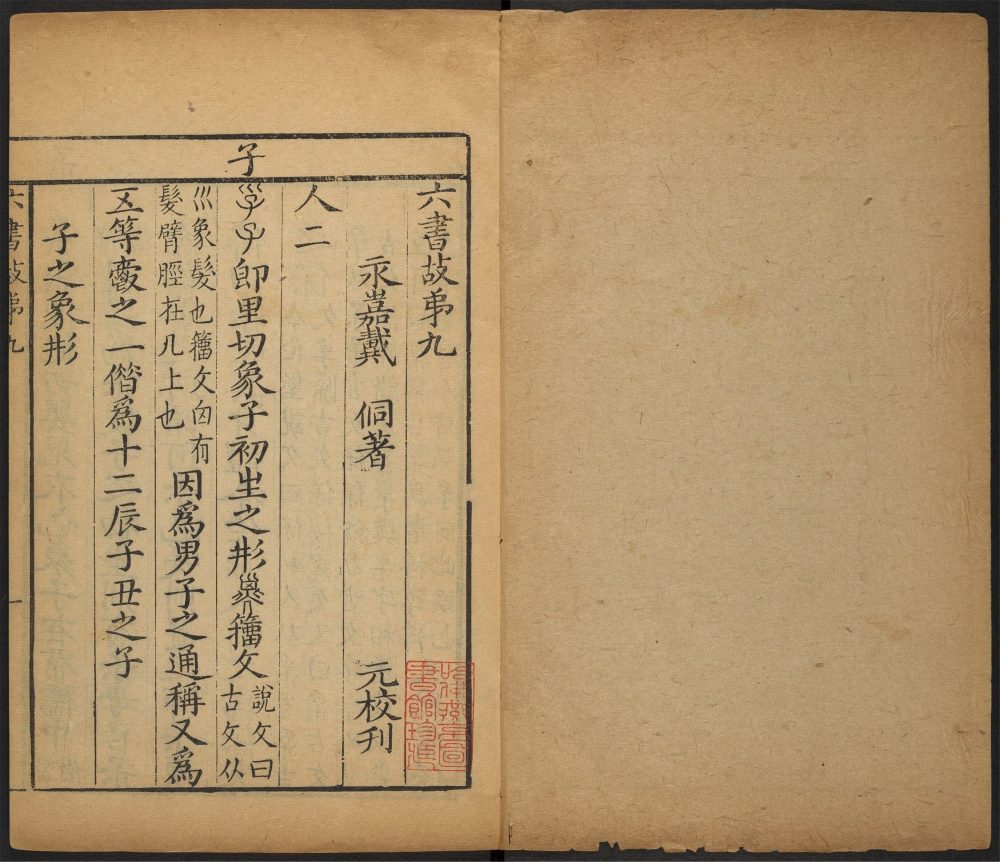 子
六書故弟九
永嘉戴 侗著 元校刋
人二
子卽里切象子初生之形籒文說文曰古文从
巛象髮也籒文囟有髮臂脛在几上也因爲男子之通稱又爲
五等爵之一偕爲十二辰子丑之子
子之象形
六書故弟九
一